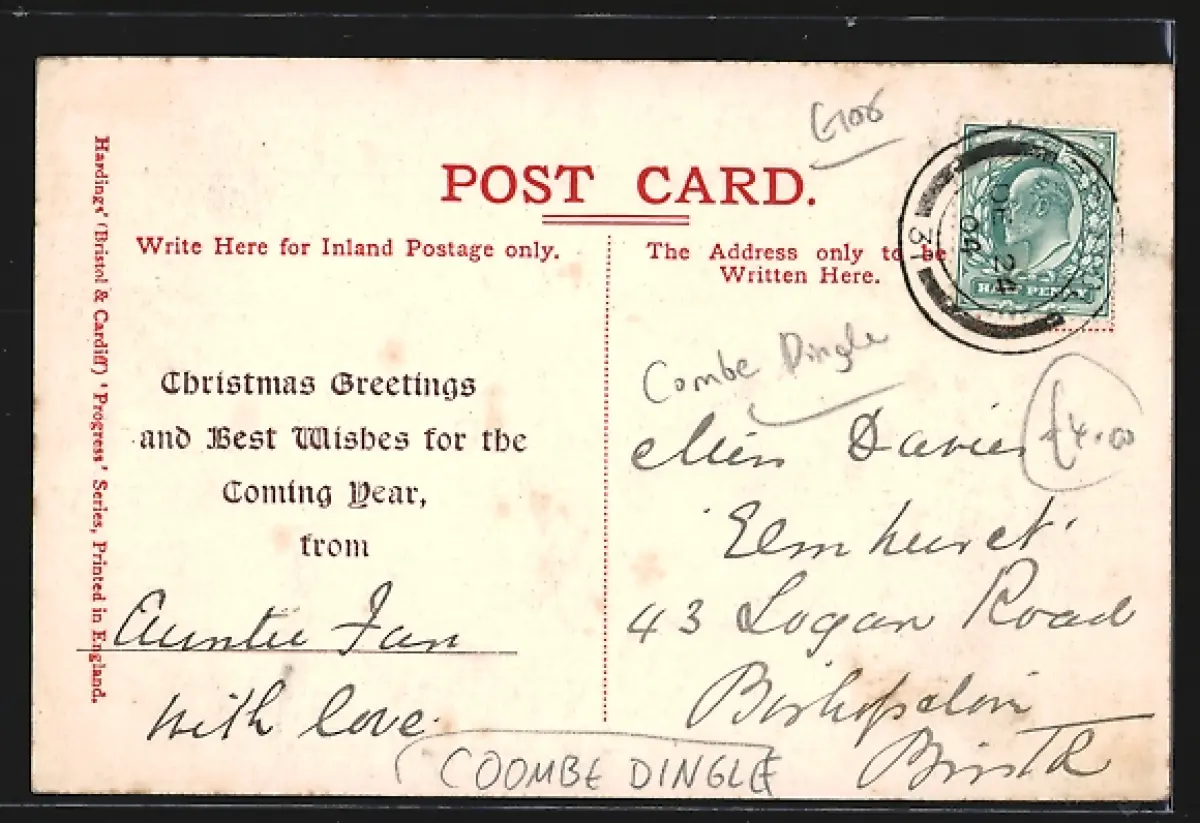 Glos
POST CARD.
Write Here for Inland Postage only.
The Address only to be
Written Here.
Hardings' (Bristol & Cardiff) 'Progress' Series, Printed in England.
DE 24
04
31
HALFPENNY
Christmas Greetings
and Best Wishes for the
Coming Year,
from
Auntie Fan
with love.
Combe Dingle
£4.00
Miss Davies
'Elmhurst'
43 Logan Road
Bishopston
COOMBE DINGLE